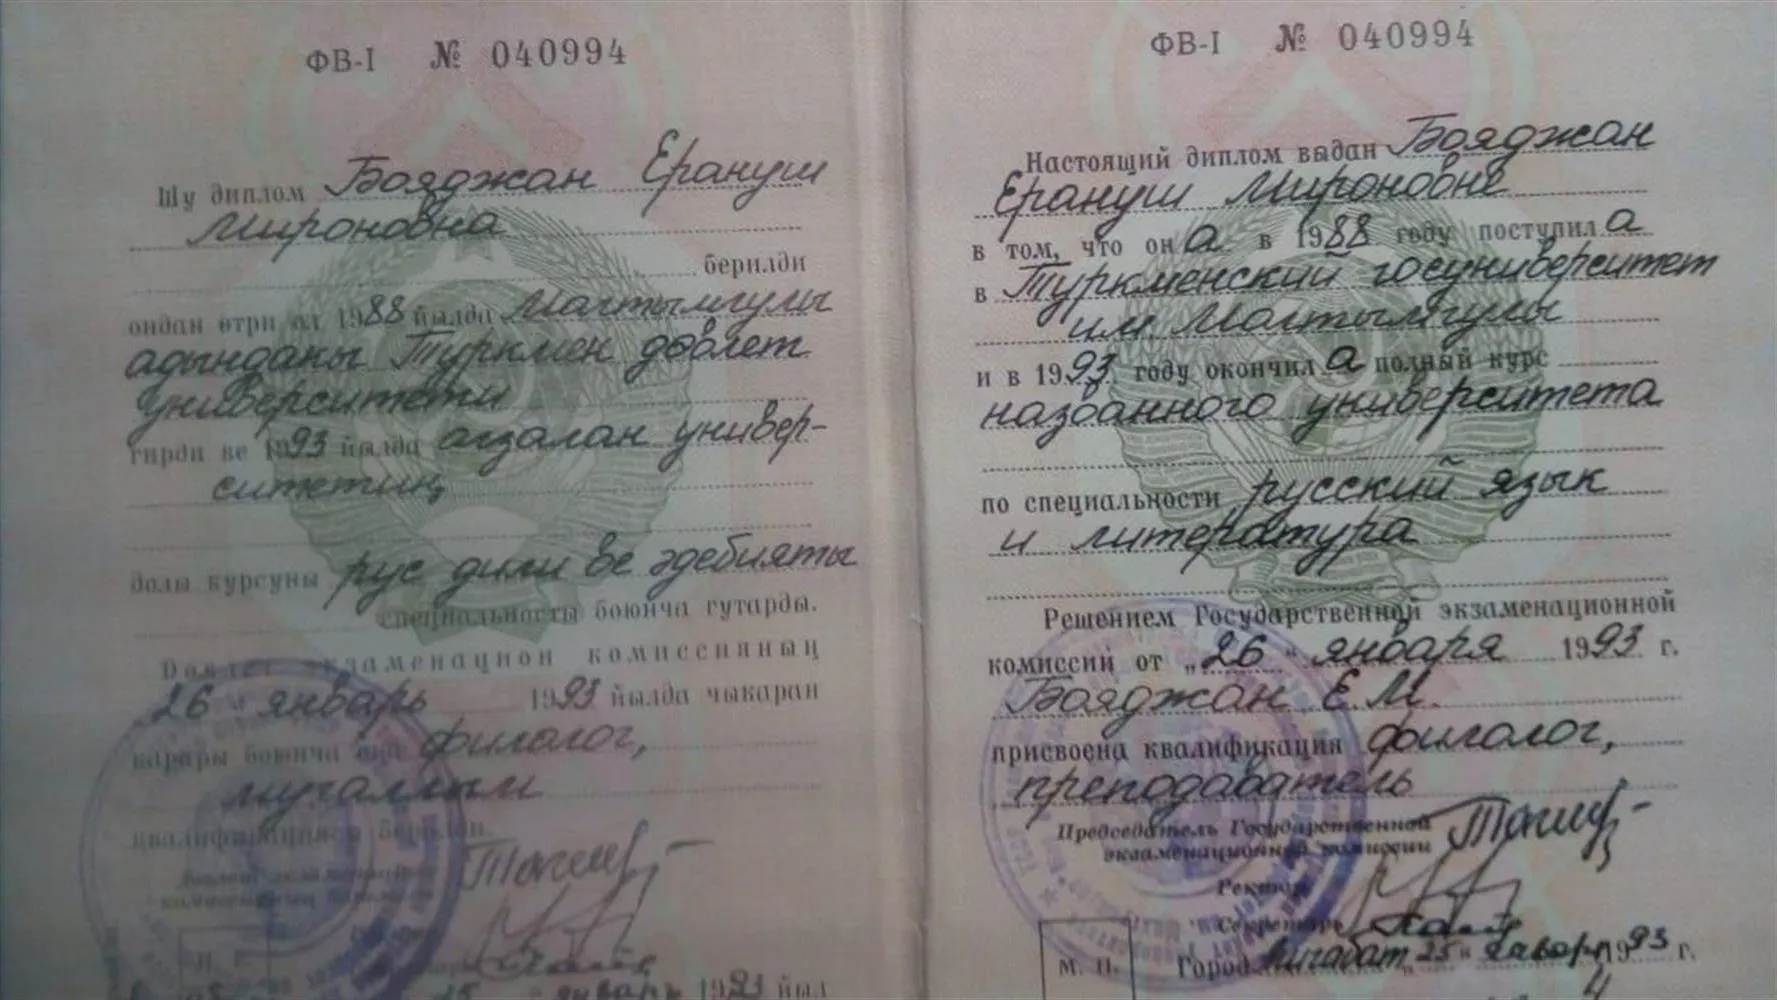 ФВ-I № 040994
Шу диплом Бояджан Ерануш
Мироновна
берилди
ондан өтри ол 1988 йылда Магтымгулы
адындакы Түркмен дөвлет
университети
гирди ве 1993 йылда агзалан универ-
ситетиң
долы курсуны рус дили ве эдебияты
специальносты боюнча гутарды.
Дөвлет экзаменацион комиссияның
26 " январь 1993 йылда чыкаран
карары боюнча оңа филолог,
мугаллым
квалификациясы берилди.
Дөвлет экзаменацион
комиссияның
М. П.
25 " январь 1993 йыл
ФВ-I № 040994
Настоящий диплом выдан Бояджан
Ерануш Мироновне
в том, что она в 1988 году поступила
в Туркменский госуниверситет
им. Магтымгулы
и в 1993 году окончила полный курс
названного университета
по специальности русский язык
и литература
Решением Государственной экзаменационной
комиссий от „26" января 1993 г.
Бояджан Е.М.
присвоена квалификация филолог,
преподаватель
Председатель Государственной
экзаменационной комиссии
Ректор
Секретарь
М. П. Город Ашгабат „25" января 1993 г.